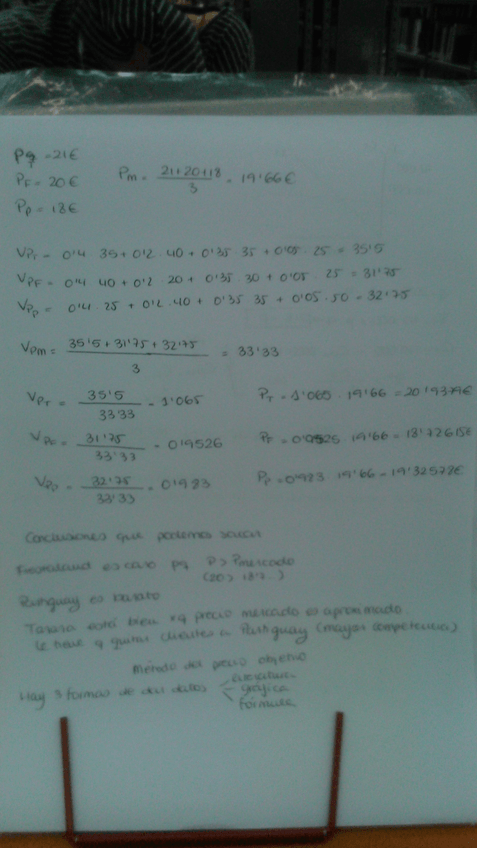 Pq = 21€
PF = 20€
Pm = 21+20+18 / 3 = 19'66€
Pp = 18€
VPT = 0'4 · 35 + 0'2 · 40 + 0'35 · 35 + 0'05 · 25 = 35'5
VPF = 0'4 · 40 + 0'2 · 20 + 0'35 · 30 + 0'05 · 25 = 31'75
VPp = 0'4 · 25 + 0'2 · 40 + 0'35 · 35 + 0'05 · 50 = 32'75
VPm = 35'5 + 31'75 + 32'75 / 3 = 33'33
VPT = 35'5 / 33'33 = 1'065
PT = 1'065 · 19'66 = 20'9379€
VPF = 31'75 / 33'33 = 0'9526
PF = 0'9526 · 19'66 = 18'72615€
VPp = 32'75 / 33'33 = 0'983
Pp = 0'983 · 19'66 = 19'32578€
Conclusiones que podemos sacar
es caro pq P > Pmercado
(20 > 18'7...)
Parguay es barato
está bien xq precio mercado es aproximado
le tiene q quitar clientes a Parguay (mayor competencia)
Método del precio objetivo
Hay 3 formas de dar datos
escritura
gráfica
fórmula